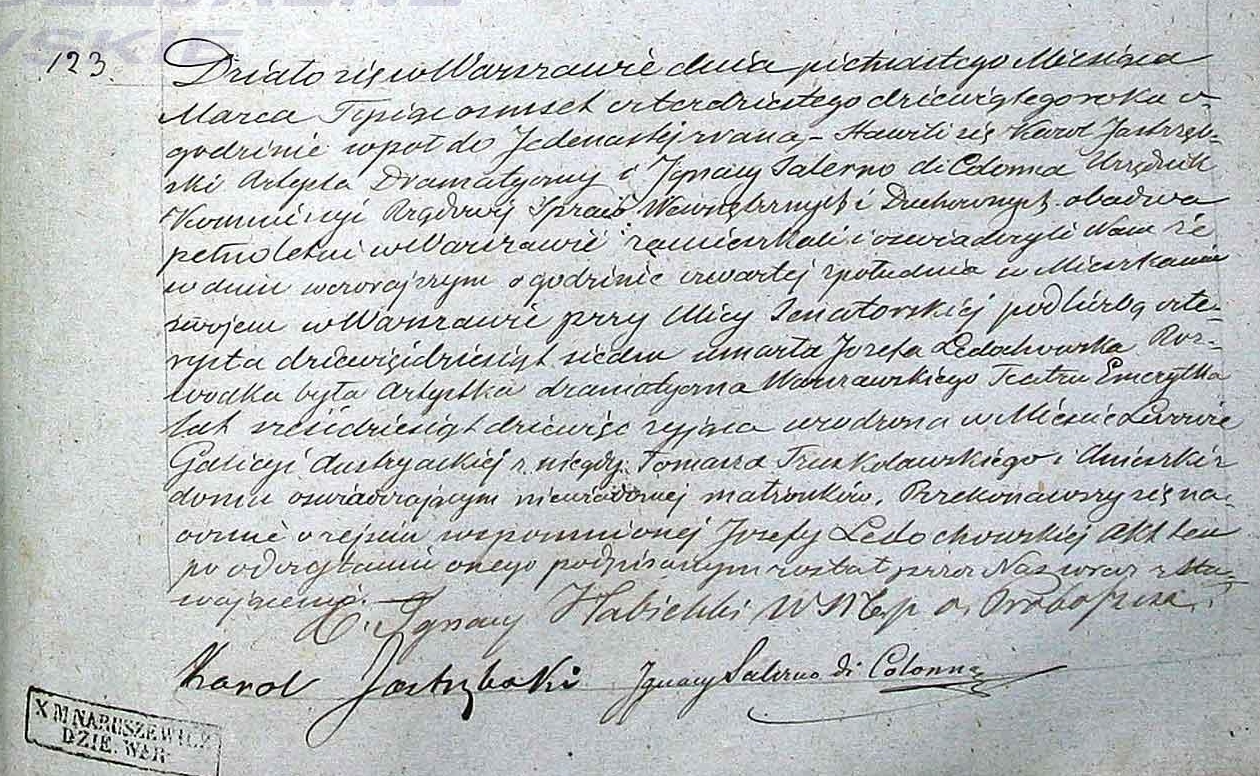 SKIE
123.
Działo się w Warszawie dnia piętnastego Miesiąca
Marca Tysiąc osmset czterdziestego dziewiątego roku o
godzinie wpół do Jedenastej zrana – Stawili się Karol Jastrzęb-
ski Artysta Dramatyczny i Ignacy Salerno di Colonna Urzędnik
Kommissyi Rządowej Spraw Wewnętrznych i Duchownych obadwa
pełnoletni w Warszawie zamieszkali i oswiadczyli Nam że
w dniu wczorajszym o godzinie czwartej z południa w Mieszkaniu
swojem w Warszawie przy Ulicy Senatorskiej pod liczbą czte-
rysta dziewięćdziesiąt siedm umarła Jozefa Ledochowska Roz-
wodka była Artystka dramatyczna Warszawskiego Teatru Emerytka
lat sześćdziesiąt dziewięć mająca urodzona w Mieście Lwowie
Galicyi Austryackiej z niegdy Tomasza Truskolawskiego i Agnieszki z
domu oswiadczającym niewiadomej małżonków. Przekonawszy się na-
ocznie o zejściu wspomnionej Jozefy Ledochowskiej Akt ten
po odczytaniu onego podpisanym został przez Nas wraz z Sta-
wającemi.
X. Ignacy Habichki
Karol Jastrzębski Ignacy Salerno di Colonna
X M NARUSZEWICZ
DZIE. WAR